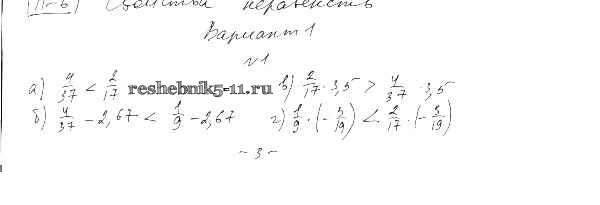 П-6) Свойства неравенств
Вариант 1
№1
а) 4/37 < 2/17 reshebnik5-11.ru в) 2/17 · 3,5 > 4/37 · 3,5
б) 4/37 - 2,67 < 1/9 - 2,67 г) 1/9 · (-3/19) < 2/17 · (-3/19)
~ 3 ~